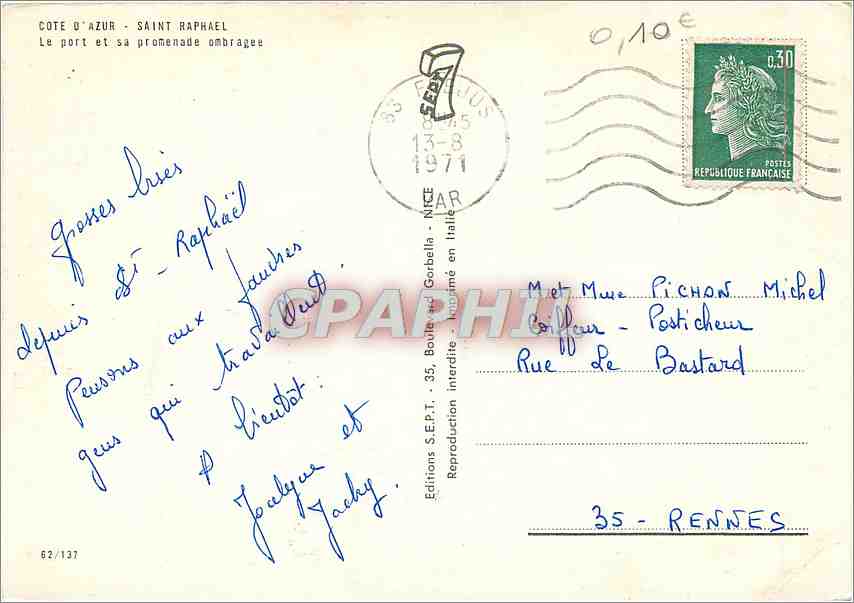 COTE D'AZUR - SAINT RAPHAEL
Le port et sa promenade ombragee
0,10 €
0,30
POSTES
REPUBLIQUE FRANÇAISE
7
SEPT
83 FREJUS
8H45
13-8
1971
VAR
grosses bises
depuis St - Raphaël
Pensons aux pauvres
gens qui travaillent.
A bientôt :
Jocelyne et
Jacky.
CPAPHIL
Editions S.E.P.T. - 35, Boulevard Gorbella - NICE
Reproduction interdite - Imprimé en Italie
M et Mme PICHON Michel
Coiffeur - Posticheur
Rue Le Bastard
35 - RENNES
62/137